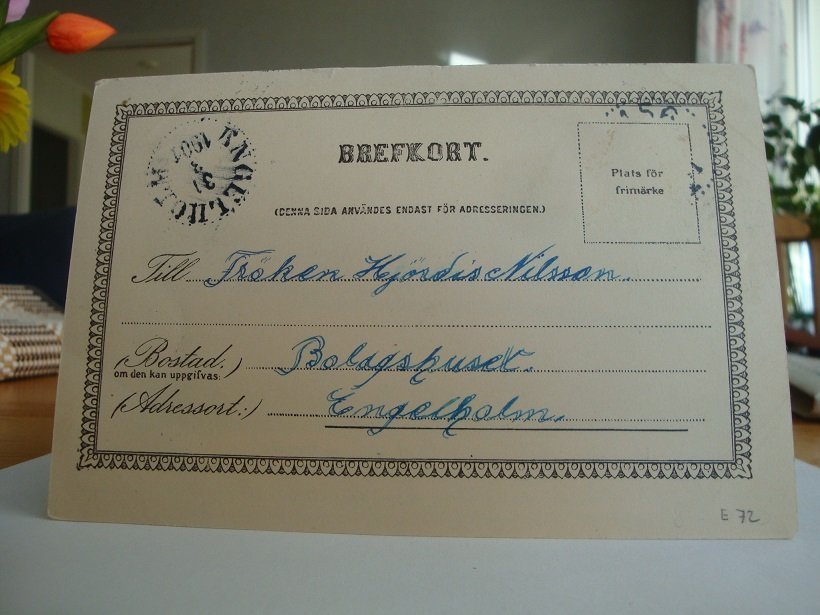 ENGELHOLM
1907
BREFKORT.
Plats för
frimärke
(DENNA SIDA ANVÄNDES ENDAST FÖR ADRESSERINGEN.)
Till Fröken Hjördis Nilsson.
(Bostad.) Bolagshuset.
om den kan uppgifvas:
(Adressort:) Engelholm.
E 72